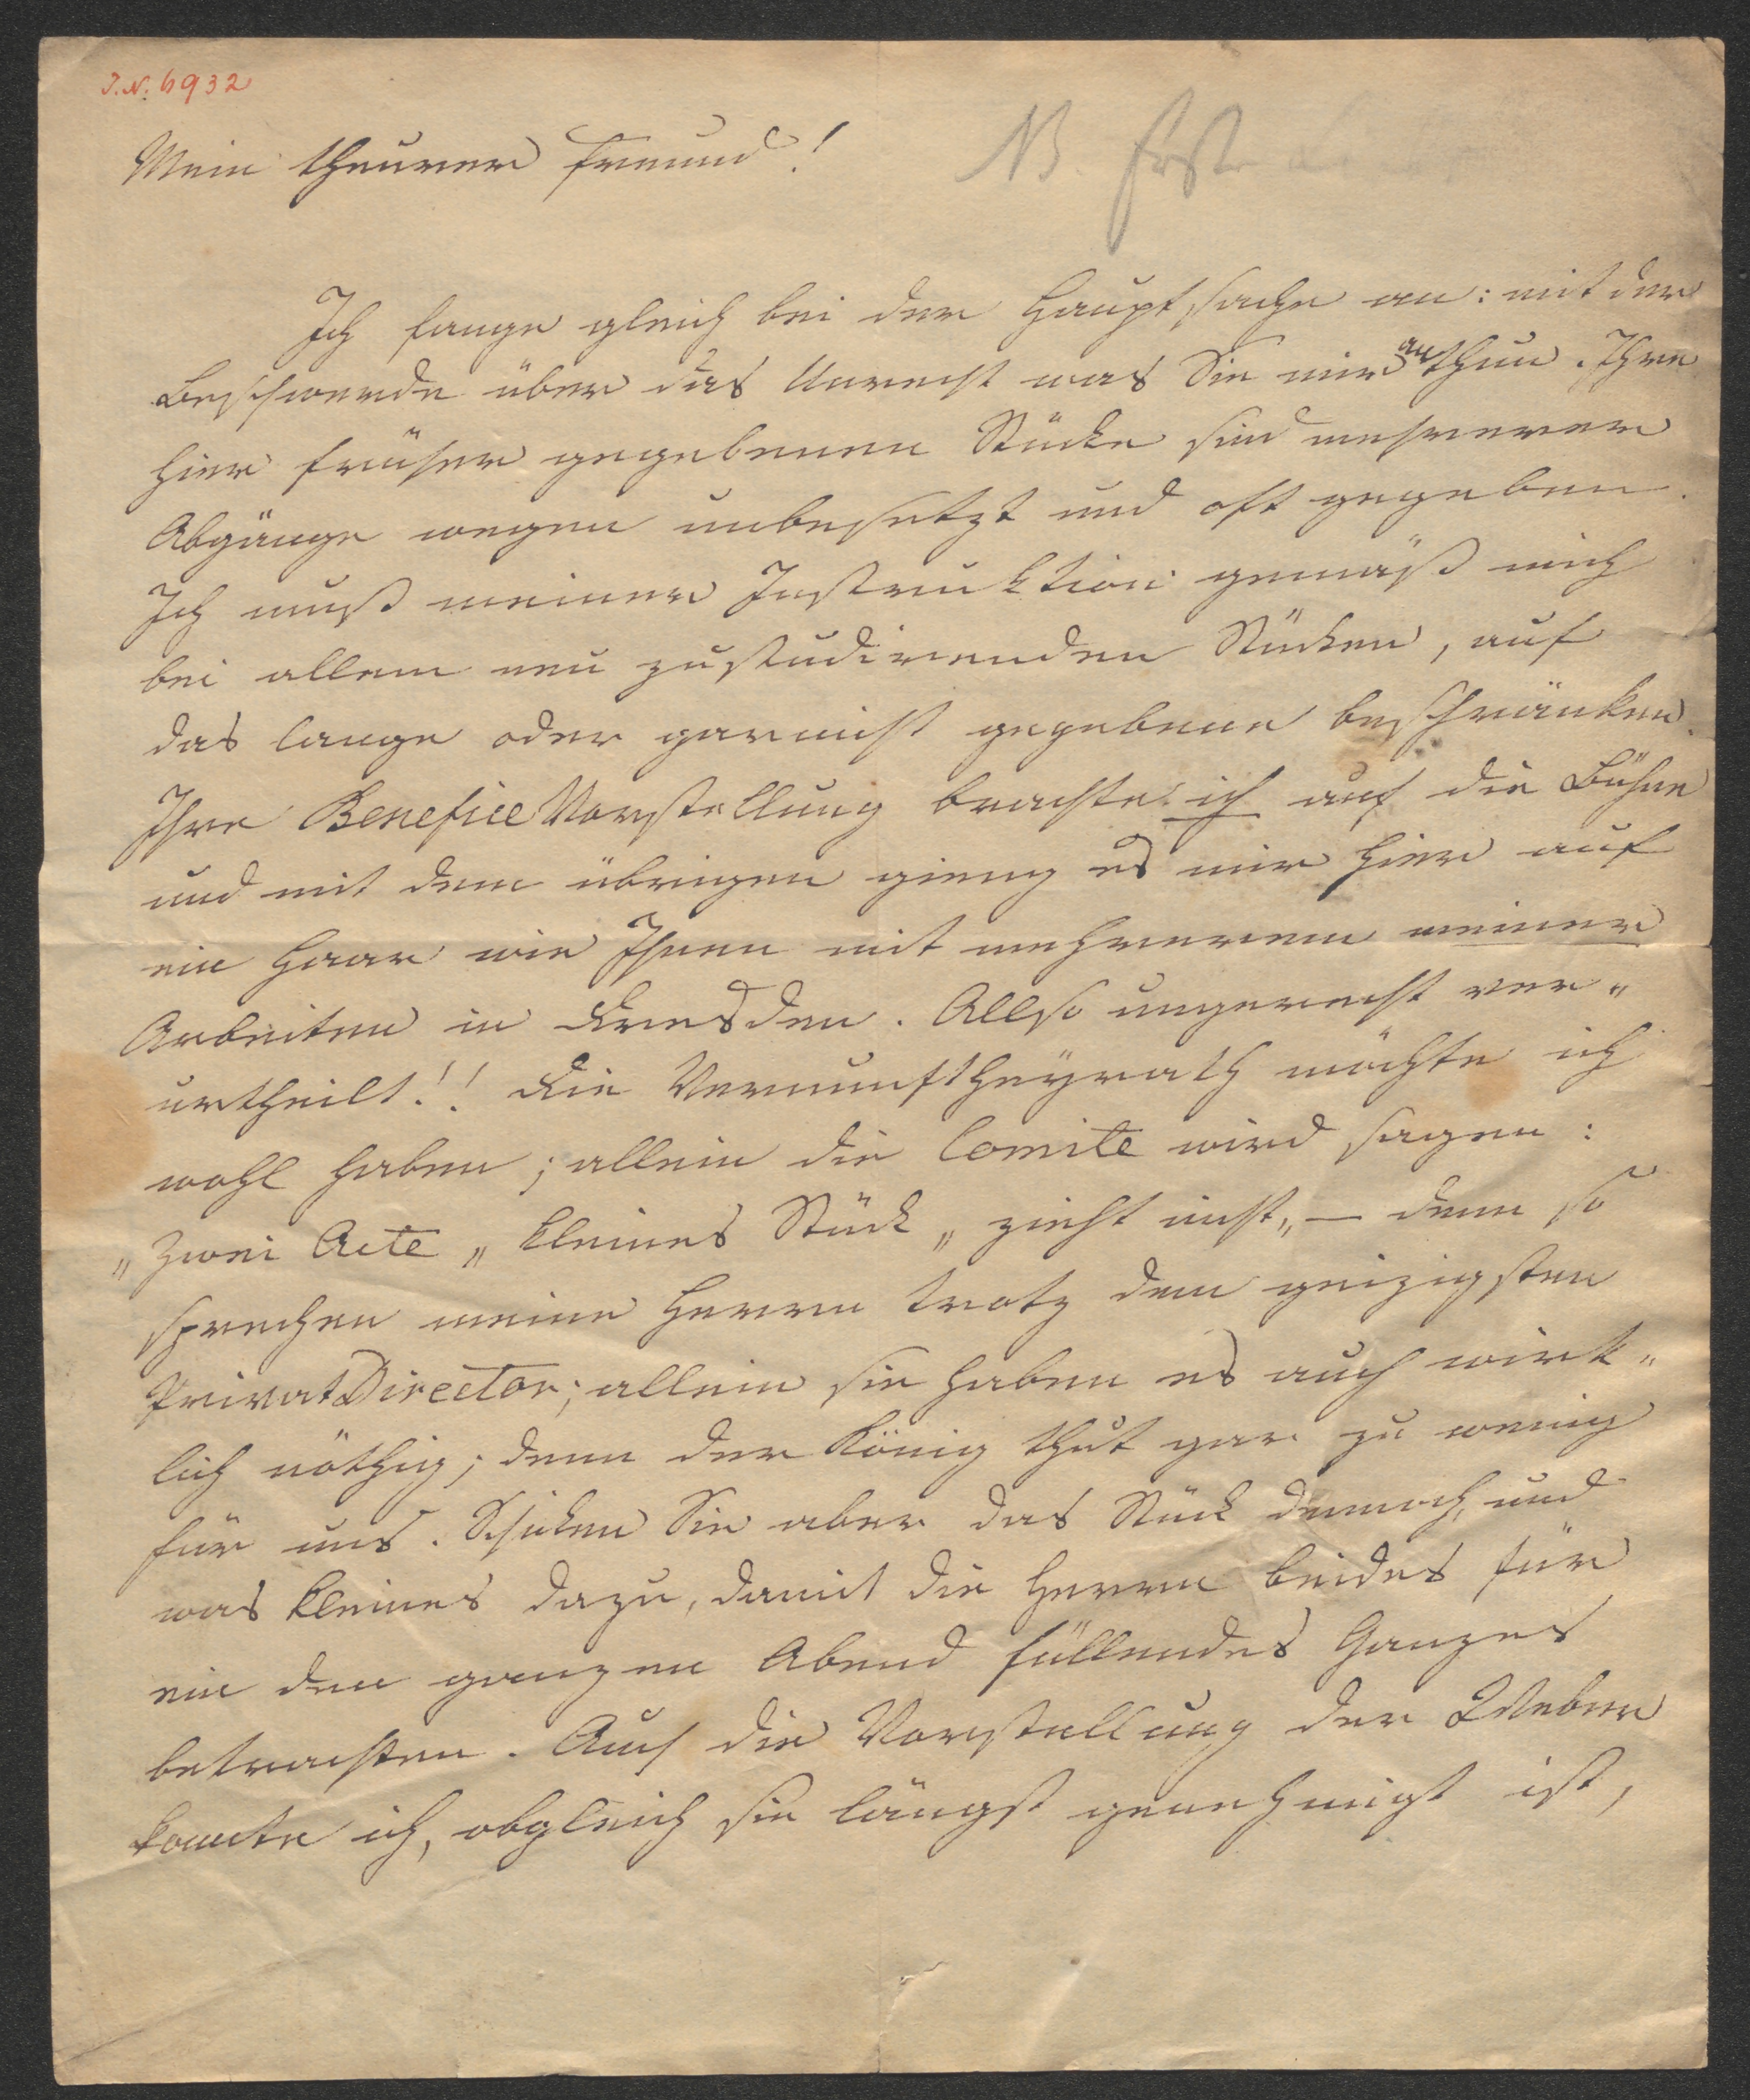 J.N. 6932
NB.
Mein theurer Freund!
Ich fange gleich bei der Hauptsache an: mit der
Beschwerde über das Unrecht was Sie mir anthun. Ihre
hier früher gegebenen Stücke sind mehrerer
Abgänge wegen unbesetzt und oft gegeben.
Ich muß meiner Instruktion gemäß mich
bei allem neu zustudirenden Stücken, auf
das lange oder garnicht gegebene beschränken.
Ihre Benefice Vorstellung brachte ich auf die Bühne
und mit dem übrigen gieng es mir hier auf
ein Haar wie Ihnen mit mehrerem meiner
Arbeiten in Dresden. Allso ungerecht ver„
urtheilt!! Die Vernunftheyrath möchte ich
wohl haben; allein die Comite wird sagen:
„Zwei Acte„ kleines Stück „zieht nicht„ — denn so
sprechen meine Herren trotz dem geizigsten
PrivatDirector; allein sie haben es auch wirk„
lich nöthig; denn der König thut gar zu wenig
für uns. Schicken Sie aber das Stück dennoch, und
was kleines dazu, damit die Herren beides für
ein den ganzen Abend füllendes Ganzes
betrachten. Auch die Vorstellung der Weber
konnte ich, obgleich sie längst genehmigt ist,